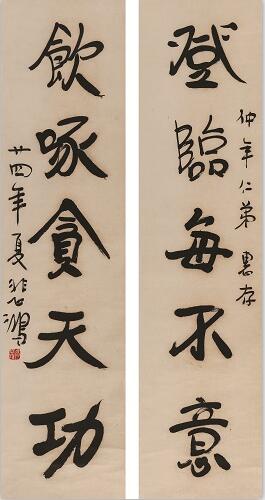 仲年仁弟 惠存
登臨每不意
飲啄貪天功
廿四年夏悲鴻